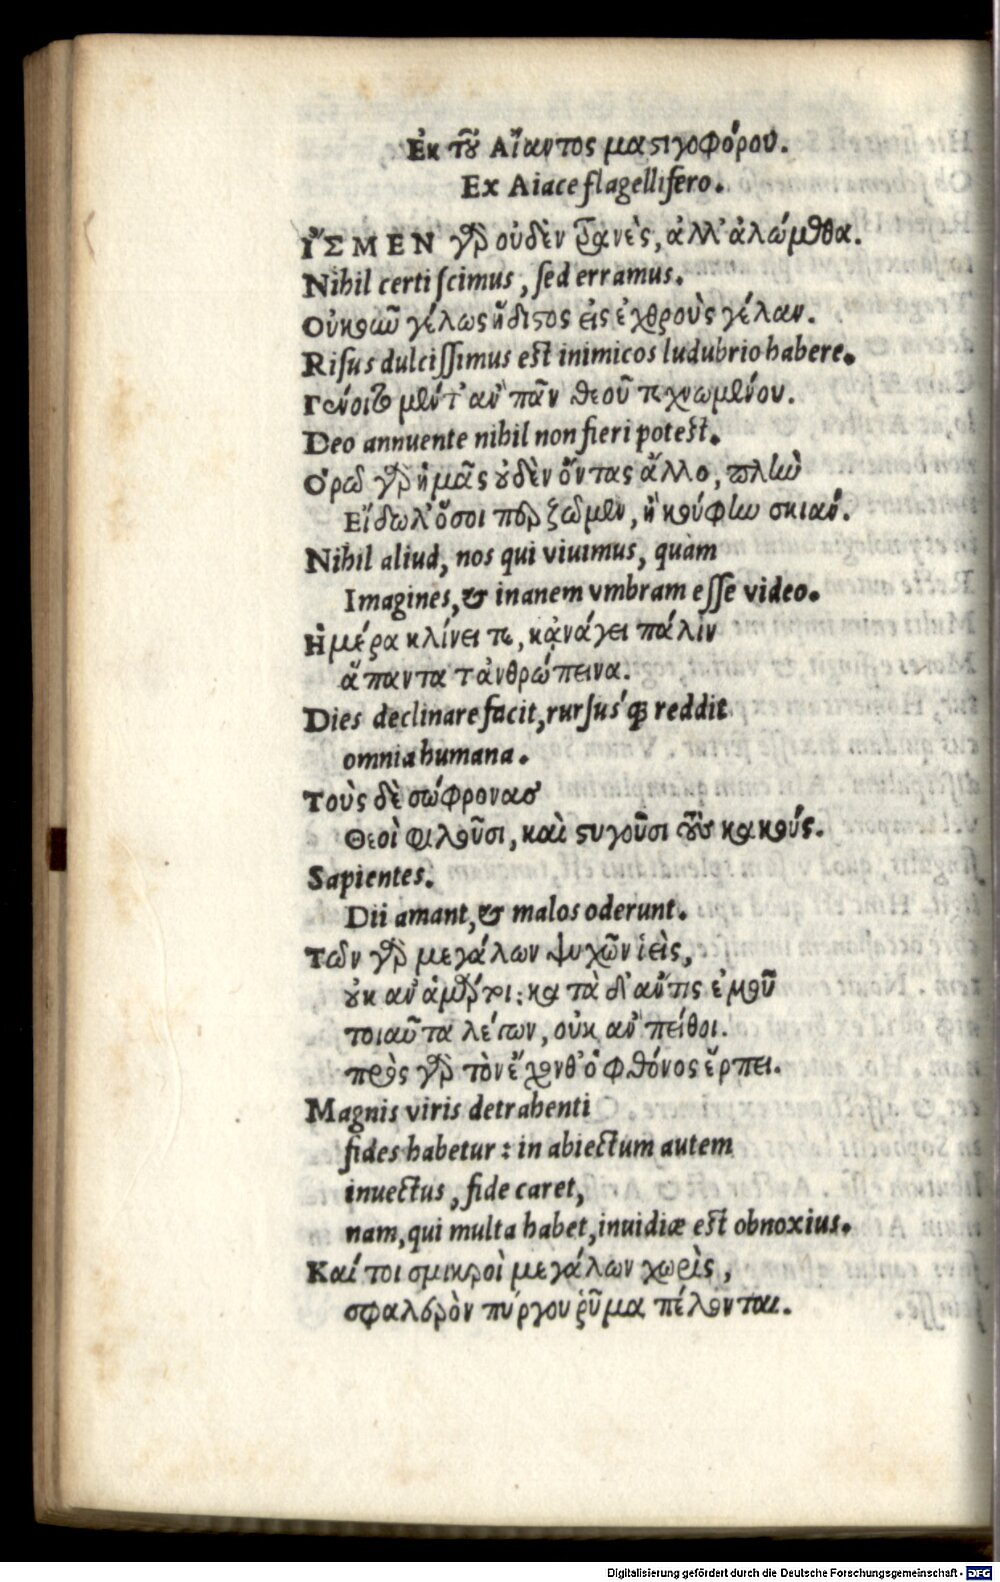 Ἐκ τοῦ Αἴαντος μαστιγοφόρου.
Ex Aiace flagellifero.
ἼΣΜΕΝ γὰρ οὐδὲν τρανὲς, ἀλλ' ἀλώμεθα.
Nihil certi scimus, sed erramus.
Οὐκοῦν γέλως ἥδιστος εἰς ἐχθροὺς γέλαν.
Risus dulcissimus est inimicos ludubrio habere.
Γένοιτο μέντ' ἀν πᾶν θεοῦ τεχνωμένου.
Deo annuente nihil non fieri potest.
Ὁρῶ γὰρ ἡμᾶς οὐδὲν ὄντας ἄλλο, πλὴν
Εἴδωλ' ὅσοι περ ζῶμεν, ἢ κούφην σκιάν.
Nihil aliud, nos qui viuimus, quàm
Imagines, & inanem vmbram esse video.
Ἡμέρα κλίνει τε, κἀνάγει πάλιν
ἅπαντα τἀνθρώπεινα.
Dies declinare facit, rursus'q; reddit
omnia humana.
Τοὺς δὲ σώφρονας
Θεοὶ φιλοῦσι, καὶ στυγοῦσι τοὺς κακούς.
Sapientes.
Dii amant, & malos oderunt.
Τῶν γὰρ μεγάλων ψυχῶν ἱεὶς,
οὐκ ἀν ἁμάρτοι: κατὰ δ' αὖτις ἐμοῦ
τοιαῦτα λέγων, οὐκ ἀν πείθοι.
πρὸς γὰρ τὸν ἔχονθ' ὁ φθόνος ἕρπει.
Magnis viris detrahenti
fides habetur: in abiectum autem
inuectus, fide caret,
nam, qui multa habet, inuidiæ est obnoxius.
Καί τοι σμικροὶ μεγάλων χωρὶς,
σφαλερὸν πύργου ῥῦμα πέλονται.
Digitalisierung gefördert durch die Deutsche Forschungsgemeinschaft - DFG